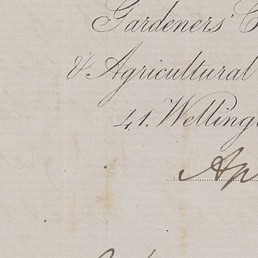 Gardeners' C
& Agricultural
41. Welling
Ap